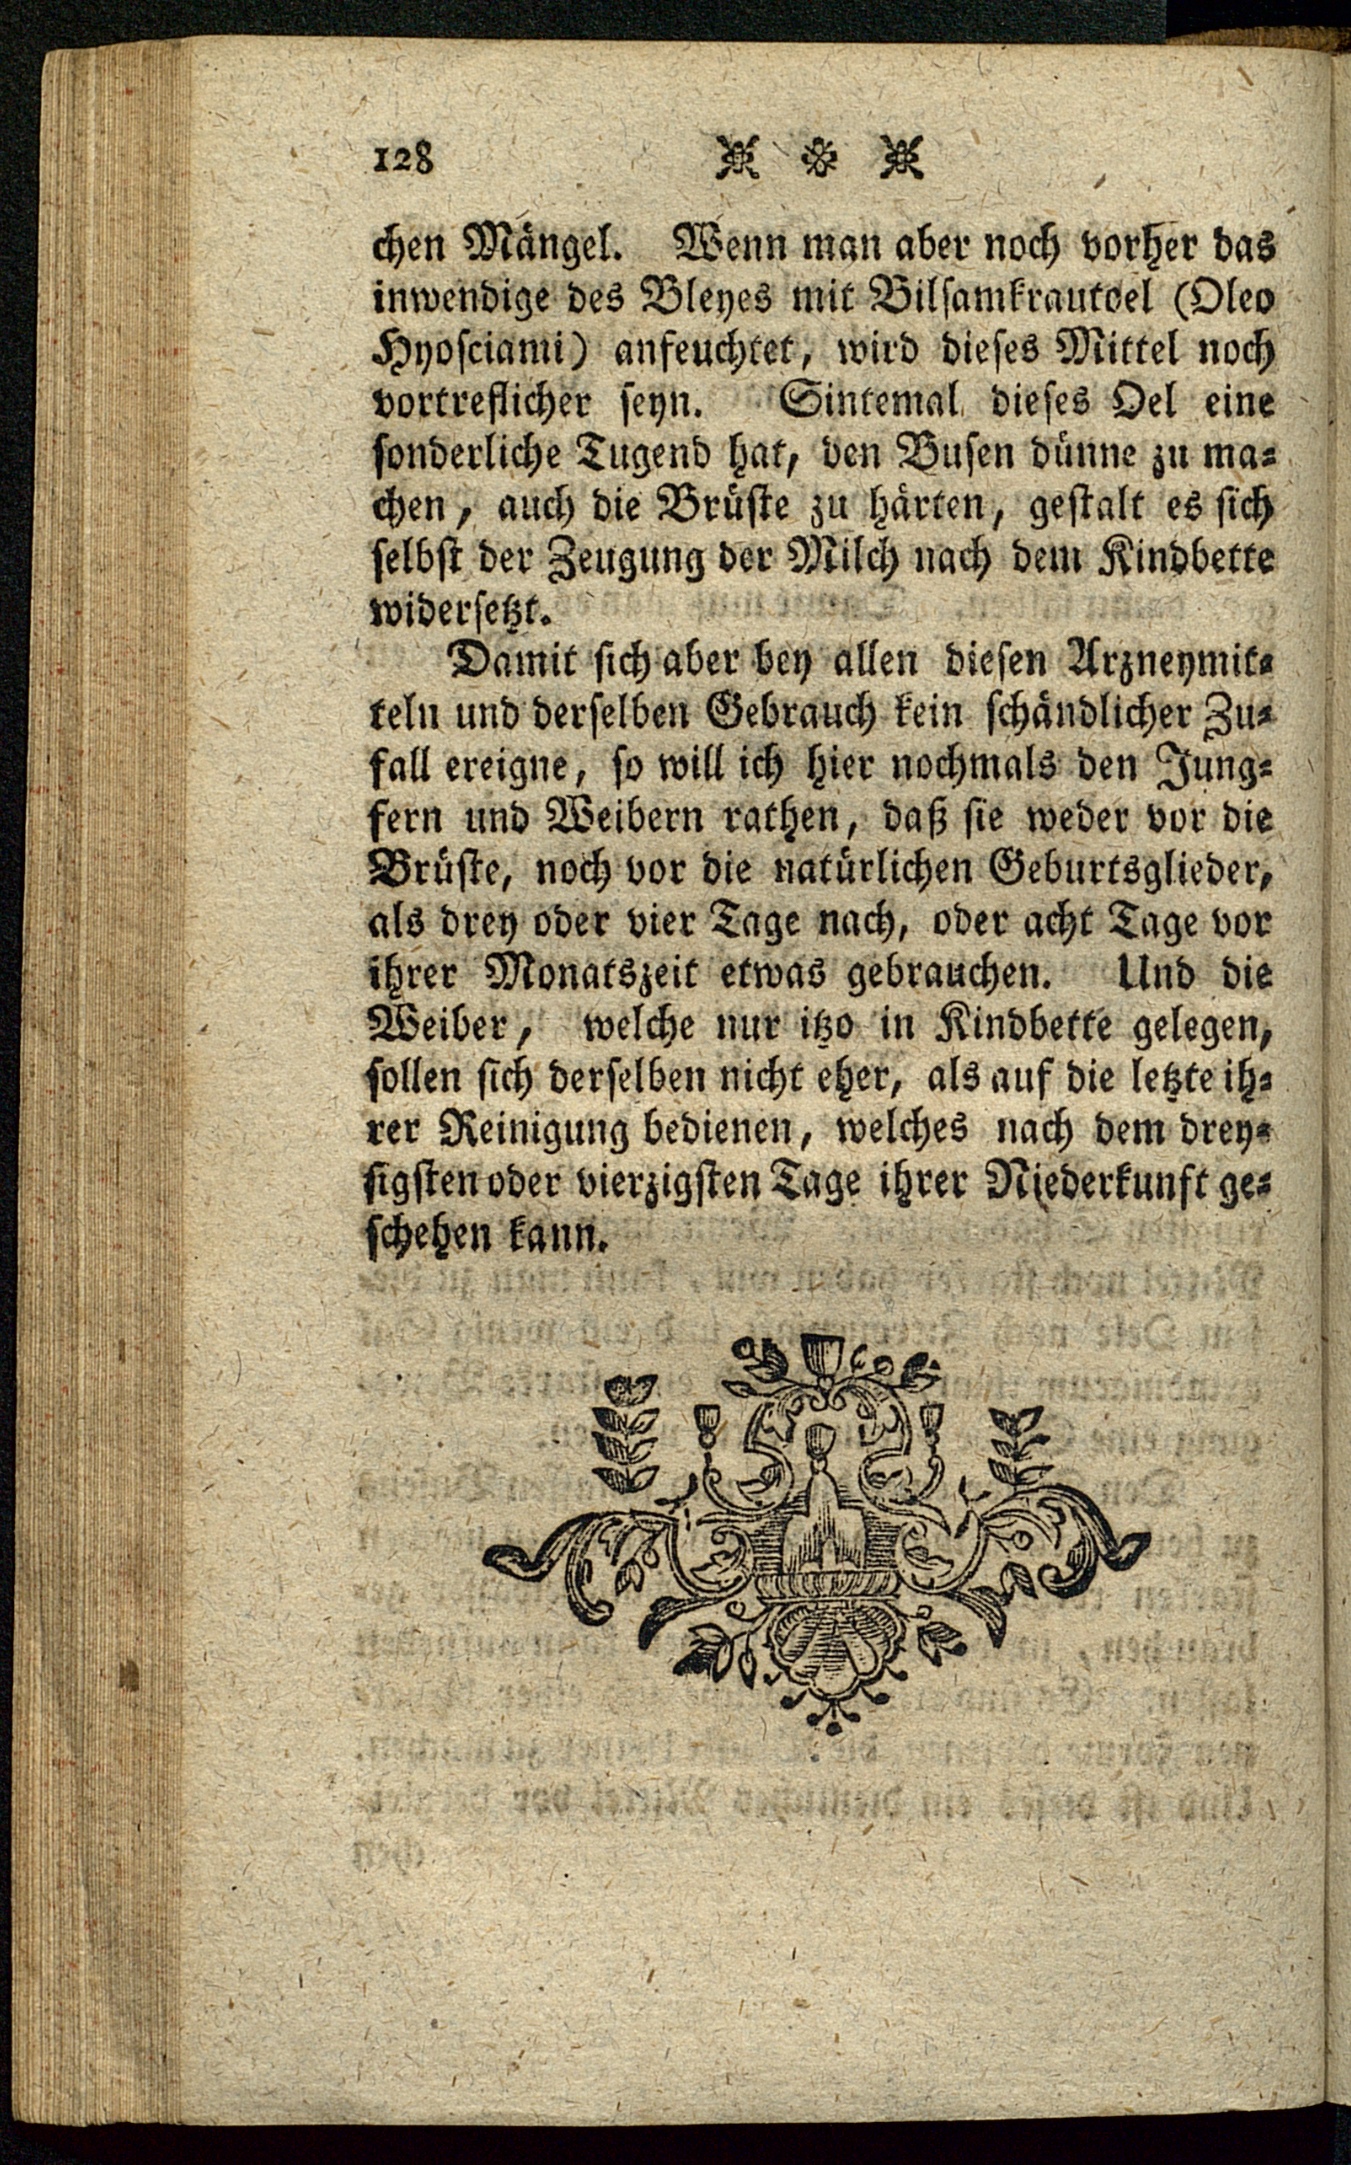 128
chen Mängel. Wenn man aber noch vorher das
inwendige des Bleyes mit Bilsamkrautoel (Oleo
Hyosciami) anfeuchtet, wird dieses Mittel noch
vortreflicher seyn. Sintemal dieses Oel eine
sonderliche Tugend hat, den Busen dünne zu ma-
chen, auch die Brüste zu härten, gestalt es sich
selbst der Zeugung der Milch nach dem Kindbette
widersetzt.
Damit sich aber bey allen diesen Arzneymit-
teln und derselben Gebrauch kein schändlicher Zu-
fall ereigne, so will ich hier nochmals den Jung-
fern und Weibern rathen, daß sie weder vor die
Brüste, noch vor die natürlichen Geburtsglieder,
als drey oder vier Tage nach, oder acht Tage vor
ihrer Monatszeit etwas gebrauchen. Und die
Weiber, welche nur itzo in Kindbette gelegen,
sollen sich derselben nicht eher, als auf die letzte ih-
rer Reinigung bedienen, welches nach dem drey-
sigsten oder vierzigsten Tage ihrer Niederkunft ge-
schehen kann.